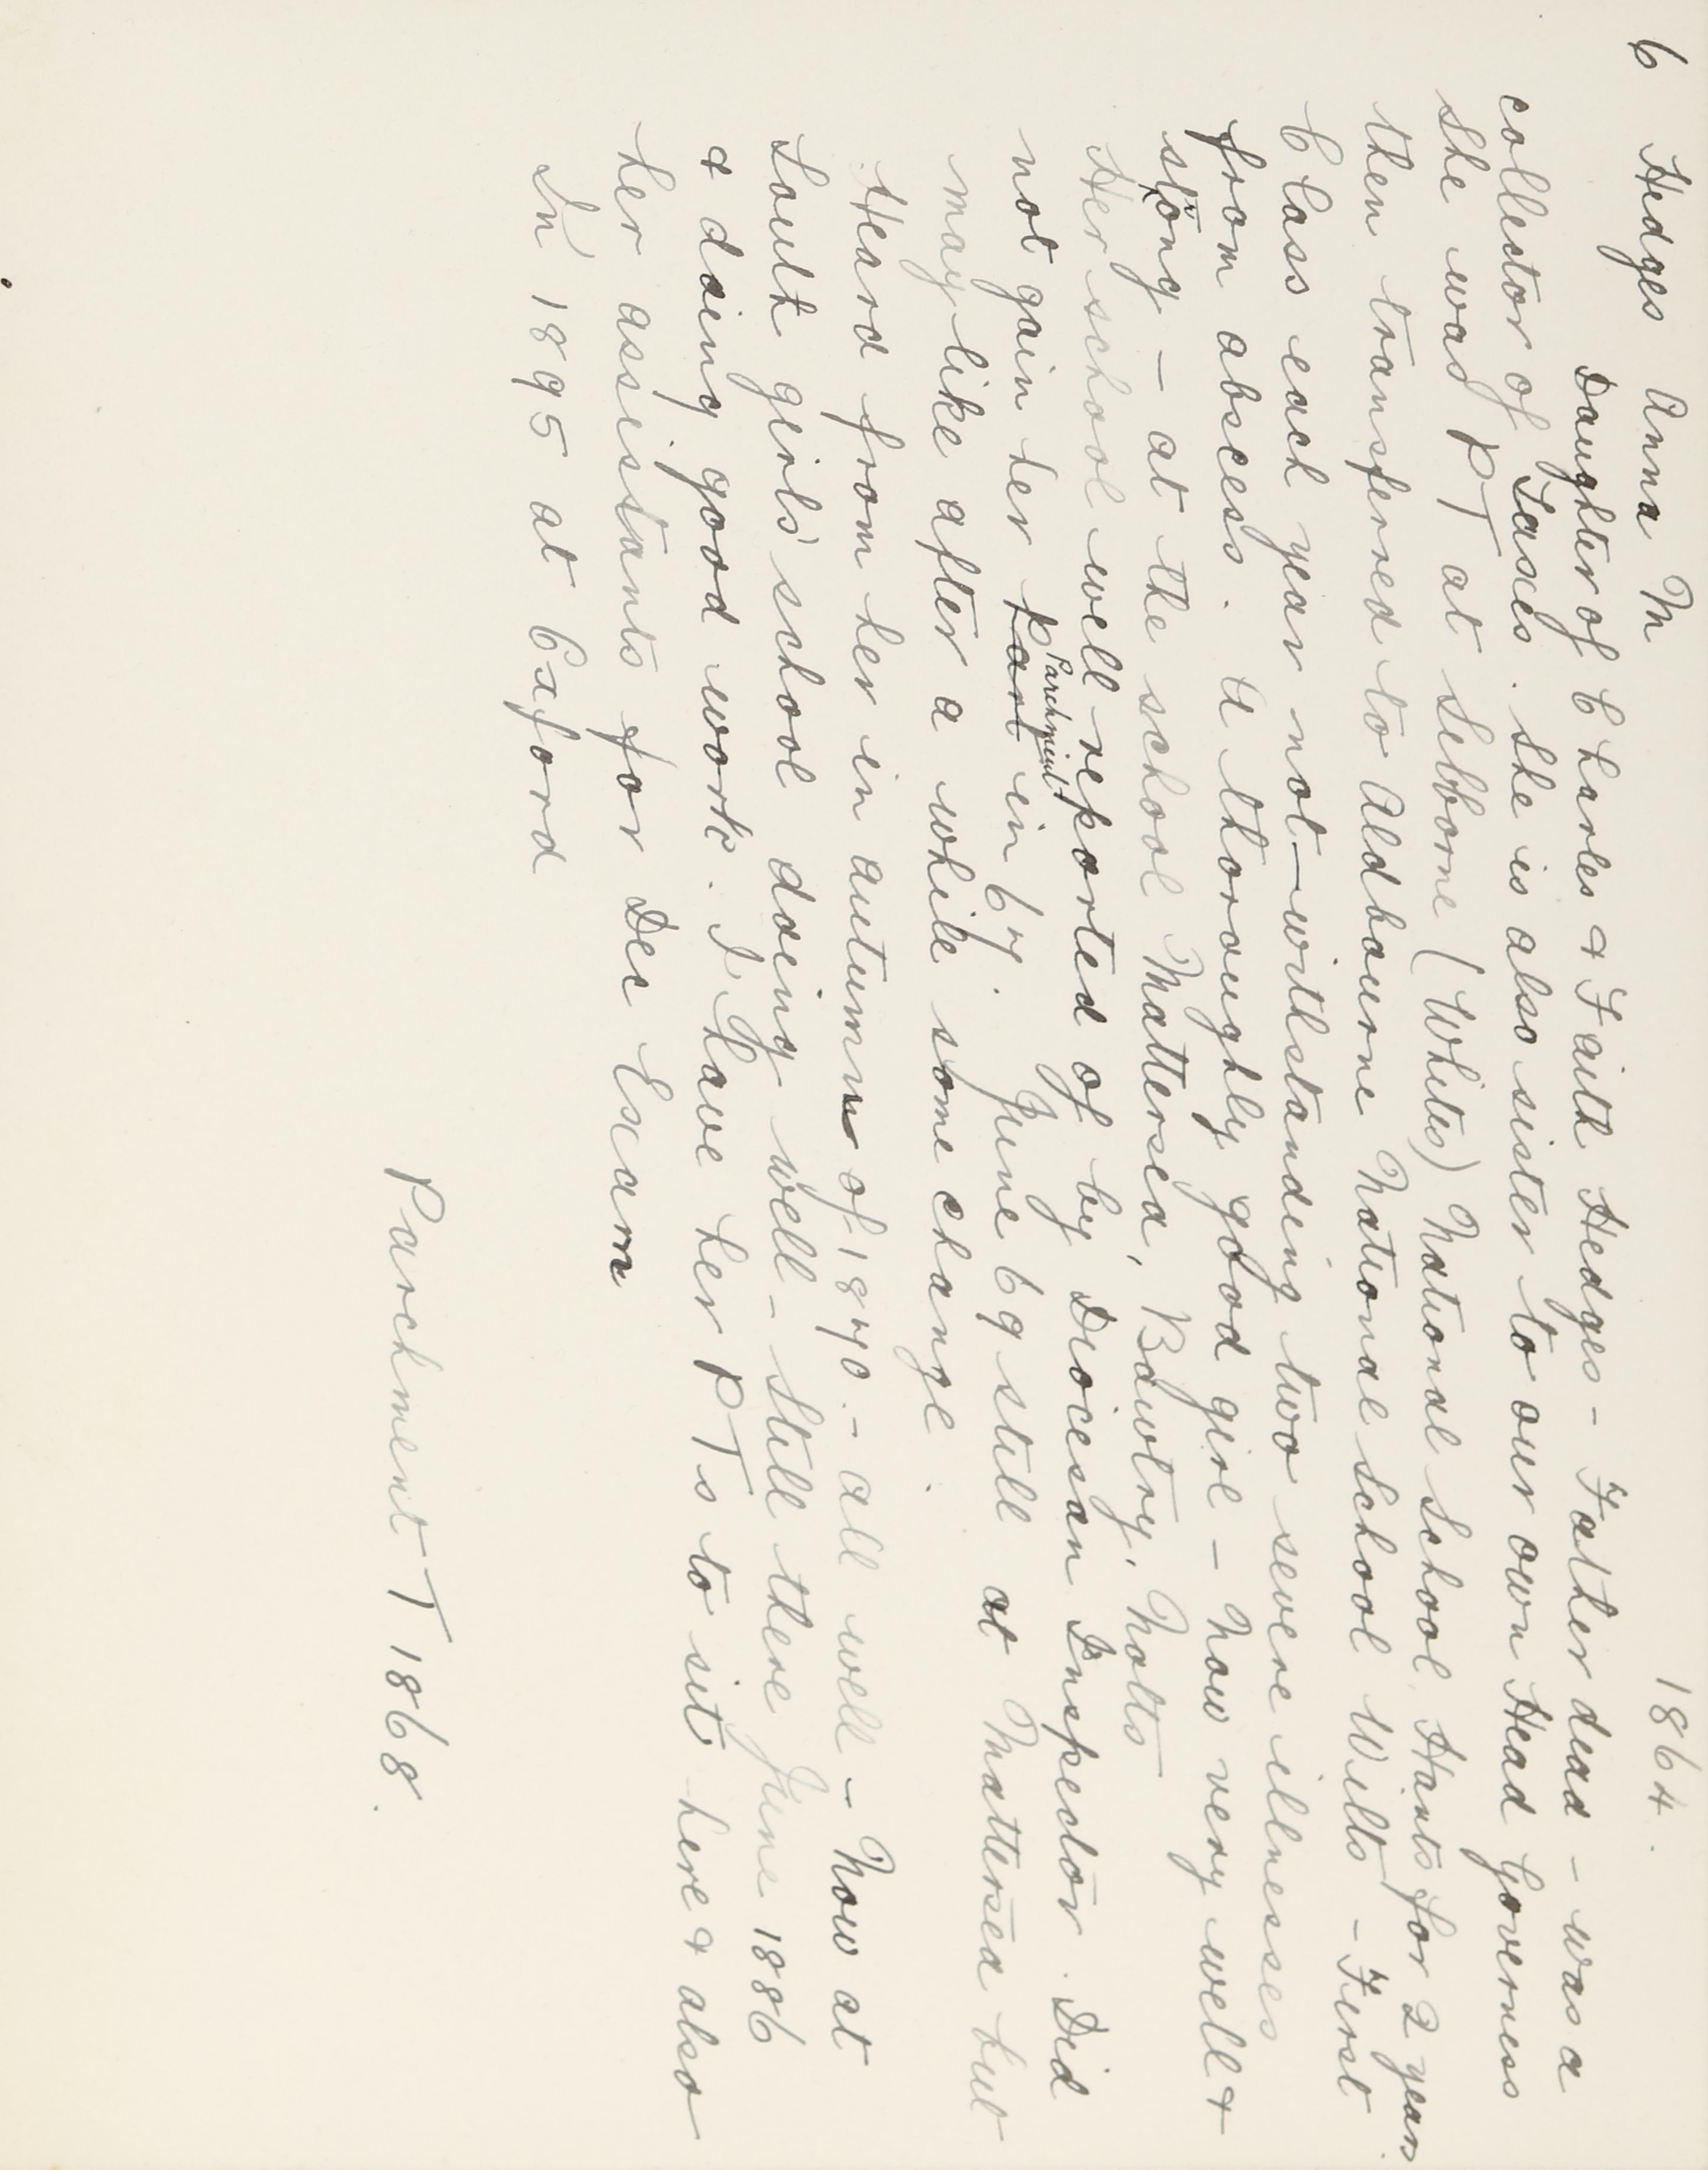 6 Hedges Anna M 1864.
Daughter of Charles & Faith Hedges - Father dead - was a
collector of Taxes. She is also sister to our own Head Governess
She was PT at Selborne (Whites) National School Hants for 2 years
then transferred to Aldbourne National School Wilts - First
Class each year not-withstanding two severe illnesses
from abscess. A thoroughly good girl - Now very well &
strong - at the school Mattersea, Bawtry, Notts
Her school well reported of by Diocesan Inspector. Did
not gain her Part Parchment in 67. June 69 still at Mattersea but
may like after a while some change.
Heard from her in autumn of 1870. - all well - Now at
South girls' school doing well - Still there June 1886
& doing good work. I have her PTs to sit here & also
her assistants for Dec Exam
In 1895 at Oxford
Parchment T 1868.